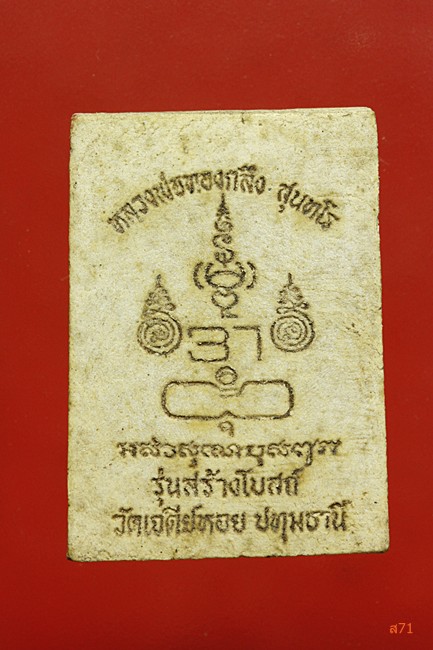 หลวงพ่อทองกลึง สุนทโร
รุ่นสร้างโบสถ์
วัดเจดีย์หอย ปทุมธานี
ส71